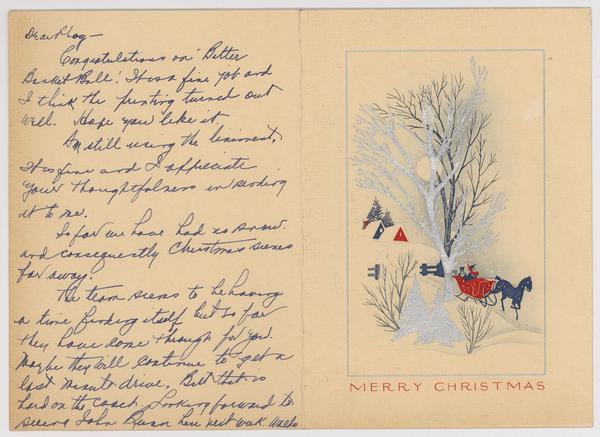 Dear Phog—
Congratulations on "Better
Basket Ball". It is a fine job and
I think the printing turned out
well. Hope you like it.
Am still using the liniment,
It is fine and I appreciate
your thoughtfulness in sending
it to me.
So far we have had no snow.
and consequently Christmas seems
far away.
The team seems to be having
a time finding itself but so far
they have come through for you.
Maybe they will continue to get a
last minute drive, But that is
hard on the coach. Looking forward to
seeing John Bunn here next week.
MERRY CHRISTMAS